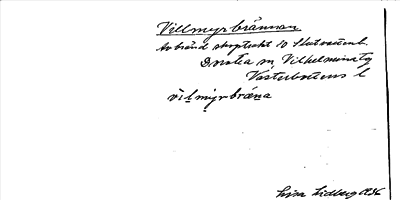 Villmyrbrännan
Avbränd skogstrakt 10 Skatvattenb.
Dorotea m, Vilhelmina tg
Västerbottens l
vìl mịyrbrä́na
Lisa Lidberg 1936